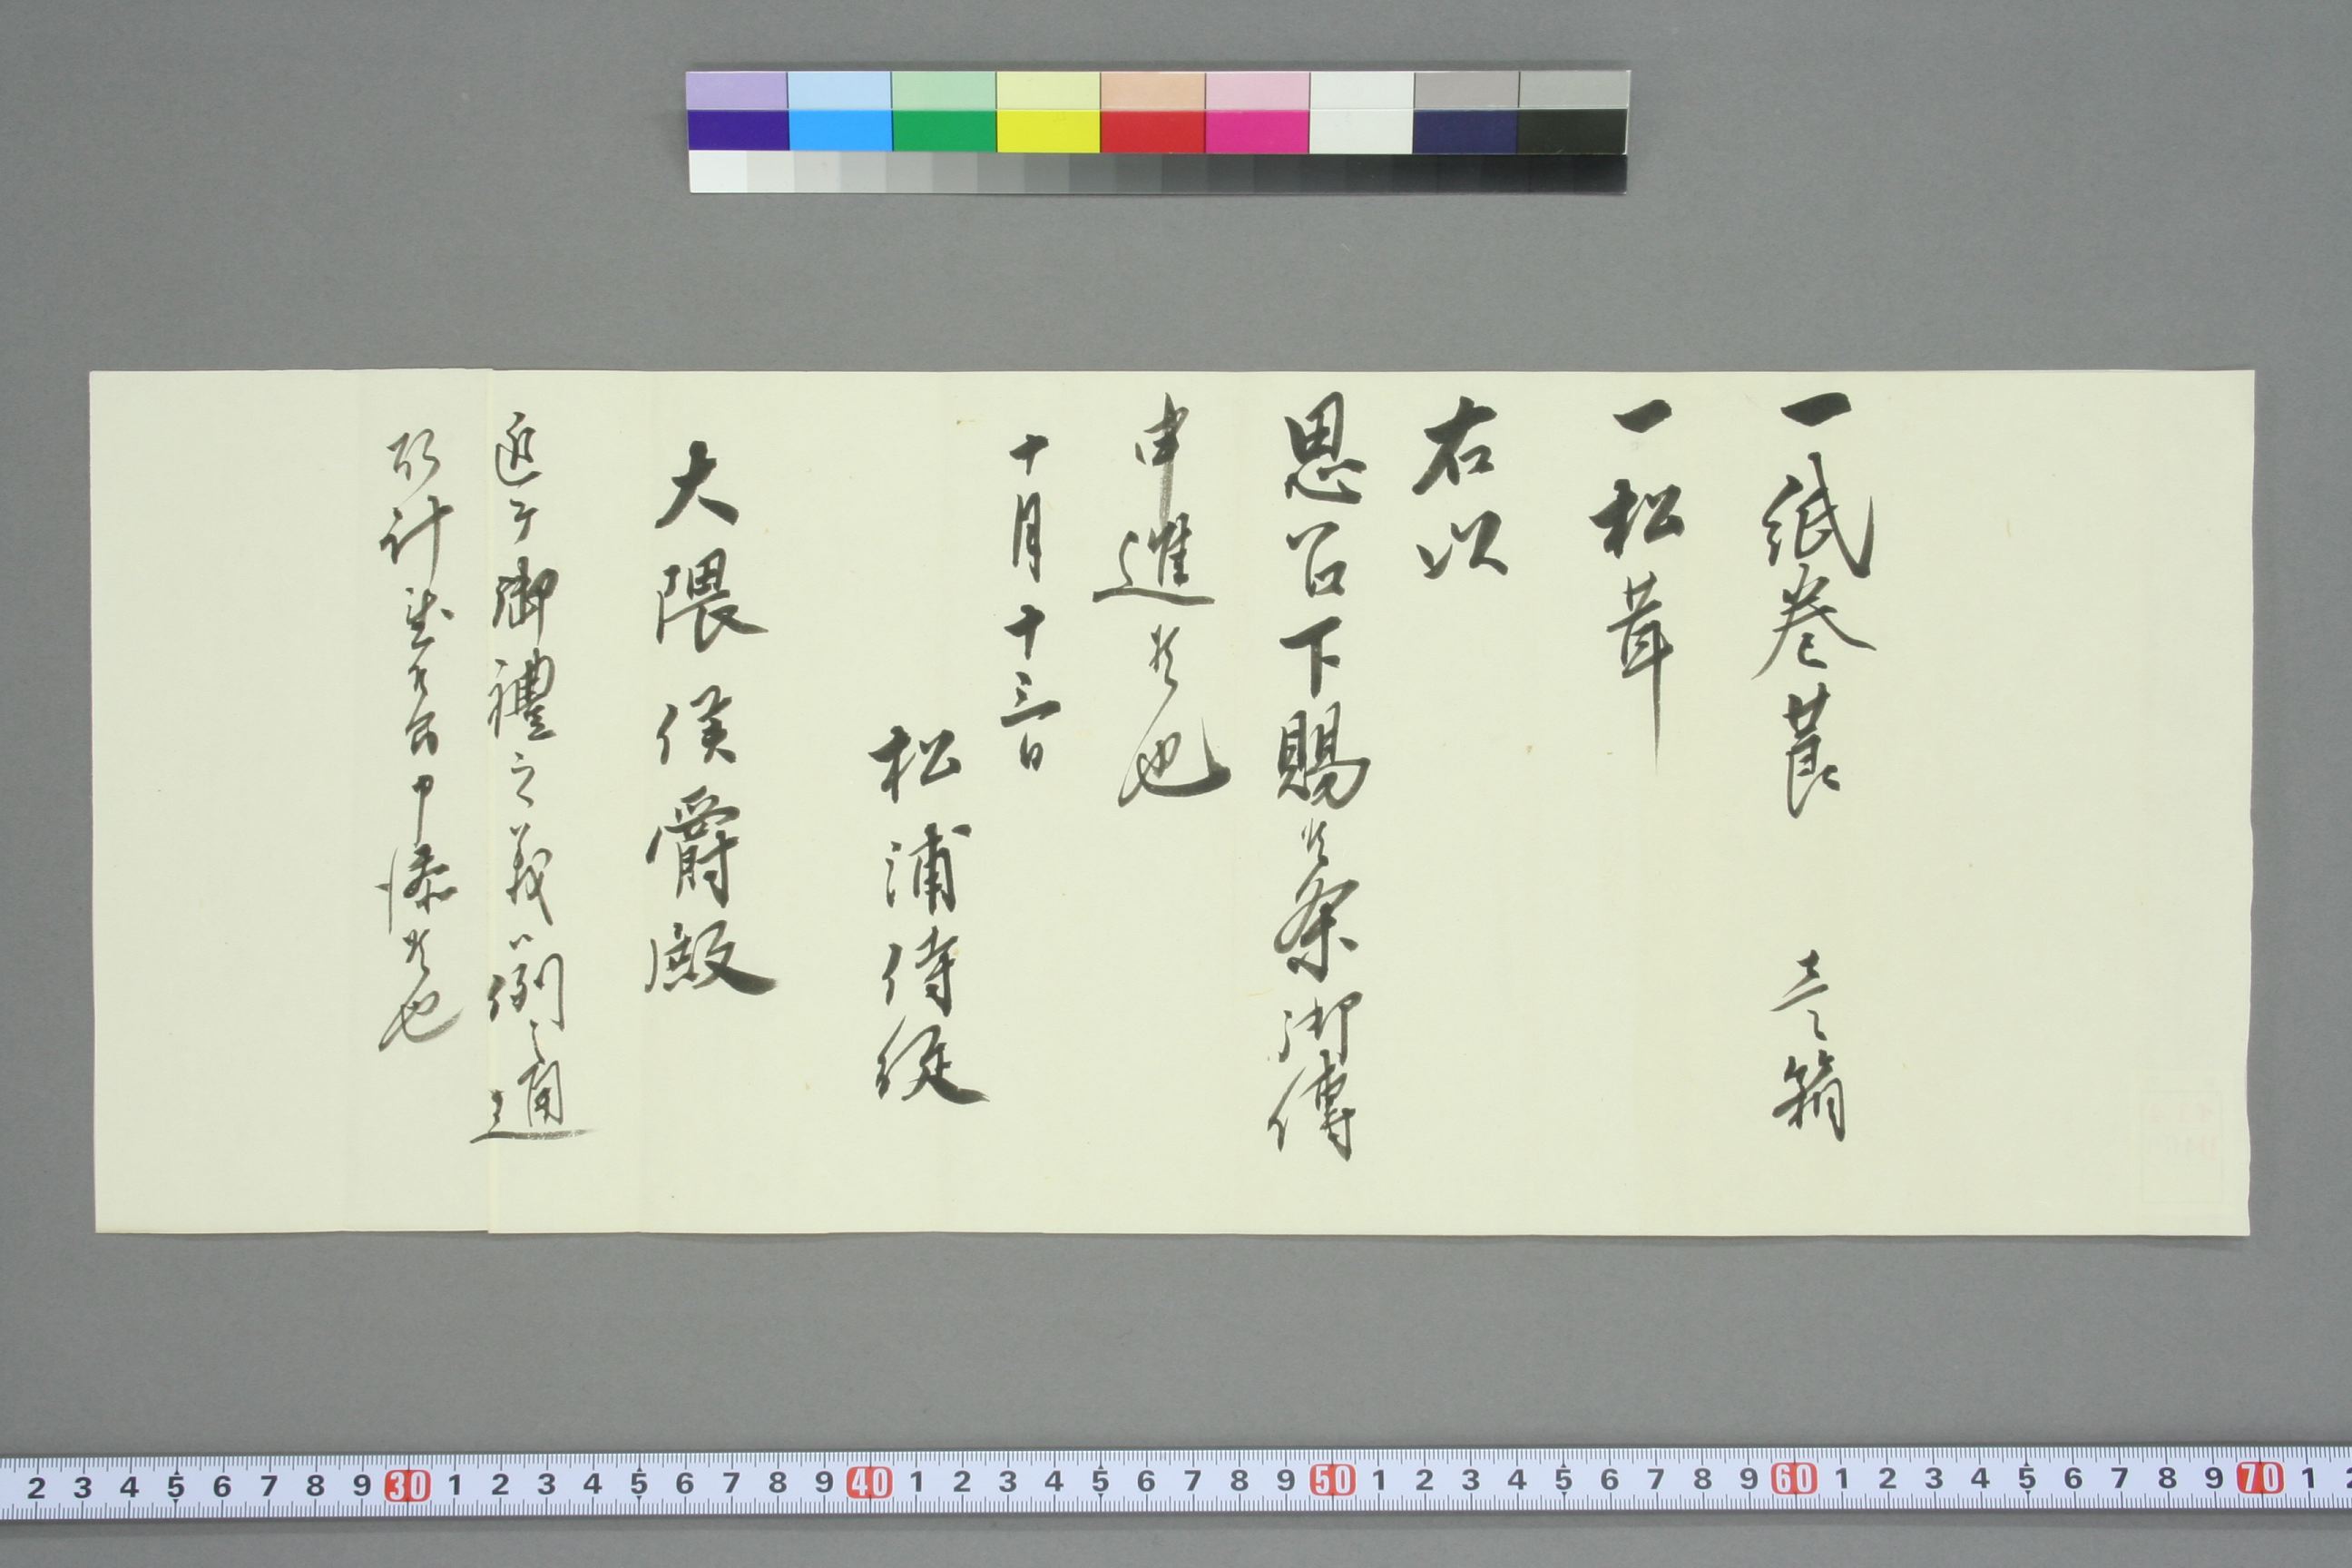 一紙巻莨　壱箱
一松茸
右以
思召下賜候条御傳
申進候也
十月十三日
松浦侍従
大隈侯爵殿
追テ御禮之義ハ例之通
取計置候間申添候也
2 3 4 5 6 7 8 9 30 1 2 3 4 5 6 7 8 9 40 1 2 3 4 5 6 7 8 9 50 1 2 3 4 5 6 7 8 9 60 1 2 3 4 5 6 7 8 9 70 1